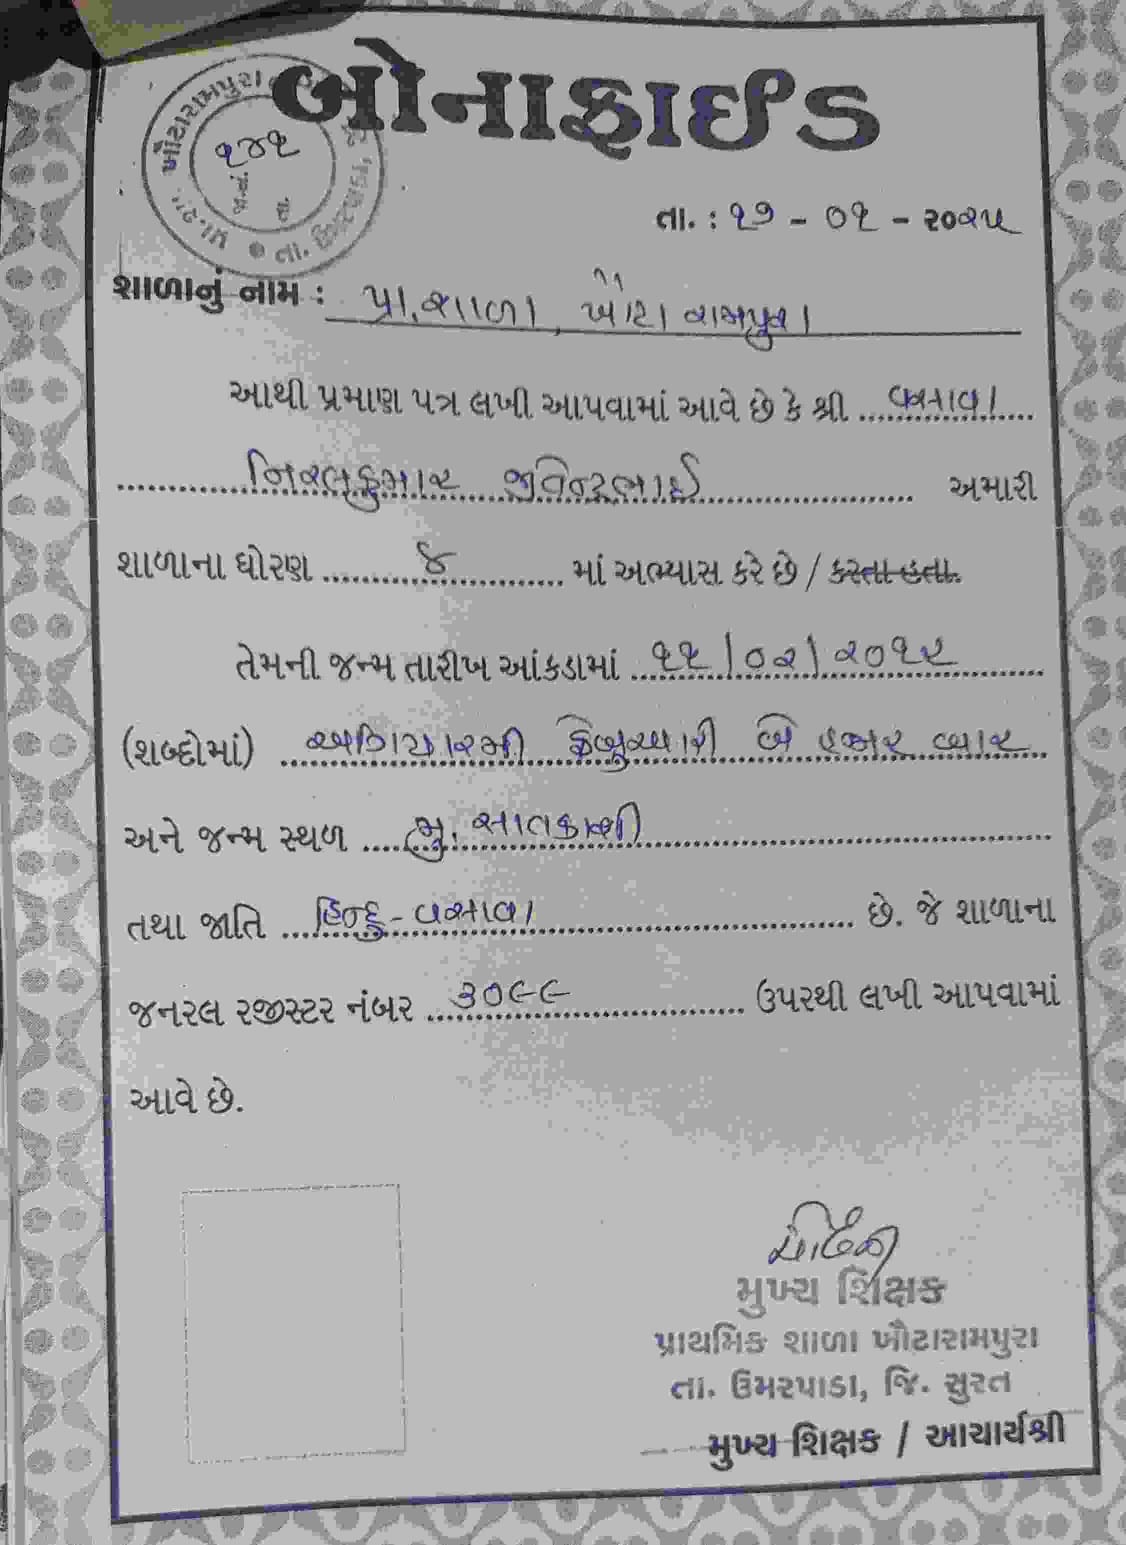 બોનાફાઈડ
ખૌટારામપુરા
૧૪૧
પ્રા.શા.
તા.
તા. : ૧૭ - ૦૧ - ૨૦૨૫
શાળાનું નામ : પ્રા.શાળા, ખૌટારામપુરા
આથી પ્રમાણ પત્ર લખી આપવામાં આવે છે કે શ્રી વસાવા
નિરલકુમાર જીતેન્દ્રભાઈ અમારી
શાળાના ધોરણ ૪ માં અભ્યાસ કરે છે / કરતા હતા.
તેમની જન્મ તારીખ આંકડામાં ૧૧/૦૨/૨૦૧૨
(શબ્દોમાં) અગિયારમી ફેબ્રુઆરી બે હજાર બાર
અને જન્મ સ્થળ મુ. સાતકાશી
તથા જાતિ હિન્દુ - વસાવા છે. જે શાળાના
જનરલ રજીસ્ટર નંબર ૩૦૯૯ ઉપરથી લખી આપવામાં
આવે છે.
મુખ્ય શિક્ષક
પ્રાથમિક શાળા ખૌટારામપુરા
તા. ઉમરપાડા, જિ. સુરત
મુખ્ય શિક્ષક / આચાર્યશ્રી